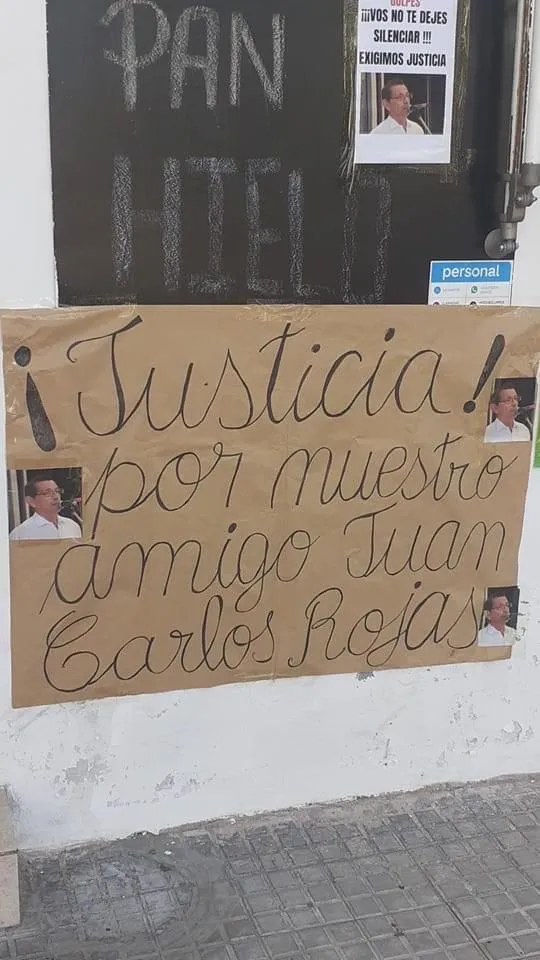 PAN
HIELO
GOLPES
¡¡¡VOS NO TE DEJES
SILENCIAR !!!
EXIGIMOS JUSTICIA
personal
¡Justicia!
por nuestro
amigo Juan
Carlos Rojas